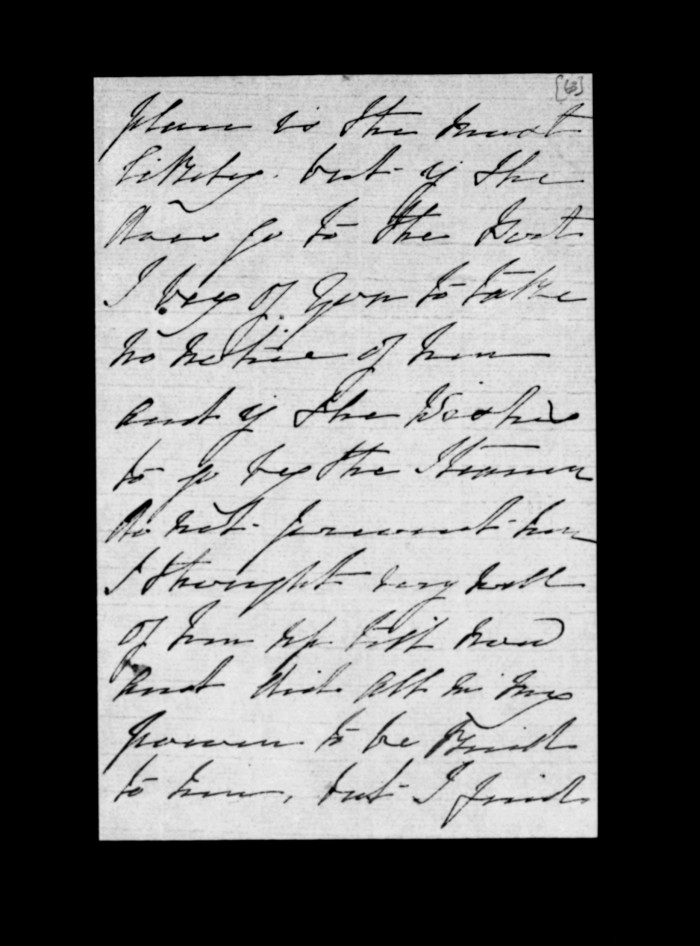 [63]
place is the most
likely. but if she
does go to the Port
I beg of you to take
no notice of her
and if she wishes
to go by the Steamer
do not prevent her
I thought very well
of her up till now
and did all in my
power to be kind
to her, but I find